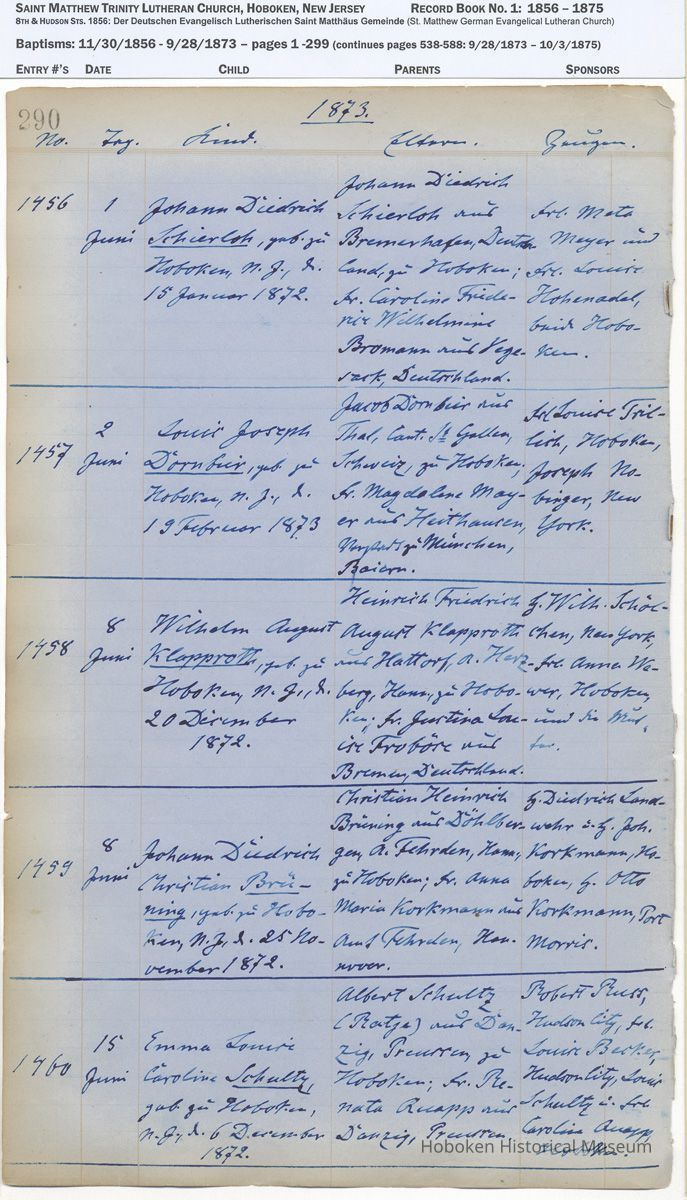 SAINT MATTHEW TRINITY LUTHERAN CHURCH, HOBOKEN, NEW JERSEY RECORD BOOK NO. 1: 1856 – 1875
8TH & HUDSON STS. 1856: Der Deutschen Evangelisch Lutherischen Saint Matthäus Gemeinde (St. Matthew German Evangelical Lutheran Church)
Baptisms: 11/30/1856 - 9/28/1873 – pages 1 -299 (continues pages 538-588: 9/28/1873 – 10/3/1875)
ENTRY #'S DATE CHILD PARENTS SPONSORS
290
1873.
No. Tag. Kind. Eltern. Zeugen.
1456
1
Juni
Johann Diedrich
Schierloh, geb. zu
Hoboken, N. J., d.
15 Januar 1872.
Johann Diedrich
Schierloh aus
Bremerhafen, Deutsch
land, zu Hoboken;
Fr. Caroline Friede-
rike Wilhelmine
Bromann aus Vege-
sack, Deutschland.
Frl. Meta
Meyer und
Frl. Louise
Hohenadel,
beide Hobo-
ken.
1457
2
Juni
Louis Joseph
Dornbier, geb. zu
Hoboken, N. J., d.
19 Februar 1873
Jacob Dornbier aus
Thal, Cant. St. Gallen,
Schweiz, zu Hoboken;
Fr. Magdalene May-
er aus Heithausen,
Vorstadt zu München,
Baiern.
Frl Louise Tril-
lich, Hoboken,
Joseph No-
binger, New
York.
1458
8
Juni
Wilhelm August
Klapproth, geb. zu
Hoboken, N. J., d.
20 December
1872.
Heinrich Friedrich
August Klapproth
aus Hattorf, A. Herz-
berg, Hann., zu Hobo-
ken; Fr. Justina Lou-
ise Froböse aus
Bremen, Deutschland.
H. Wilh. Schöl-
chen, New York,
Frl. Anna We-
wer, Hoboken,
und die Mut-
ter.
1459
8
Juni
Johann Diedrich
Christian Brü-
ning, geb. zu Hobo-
ken, N. J., d. 25 No-
vember 1872.
Christian Heinrich
Brüning aus Döhlber-
gen, A. Fehrden, Hann.,
zu Hoboken; Fr. Anna
Maria Korkmann aus
Amt Fehrden, Han-
nover.
H. Diedrich Land-
wehr u. H. Joh.
Korkmann, Ho-
boken, H. Otto
Korkmann, Port
Morris.
1460
15
Juni
Emma Louise
Caroline Schultz,
geb. zu Hoboken,
N. J., d. 6 December
1872.
Albert Schultz
(Ratze) aus Dan-
zig, Preussen, zu
Hoboken; Fr. Re-
nata Knapp aus
Danzig, Preussen
Robert Russ,
Hudson City, Frl.
Louise Becker,
Hudson City, Louis
Schultz u. Frl.
Carolina Knapp,
Hoboken Historical Museum